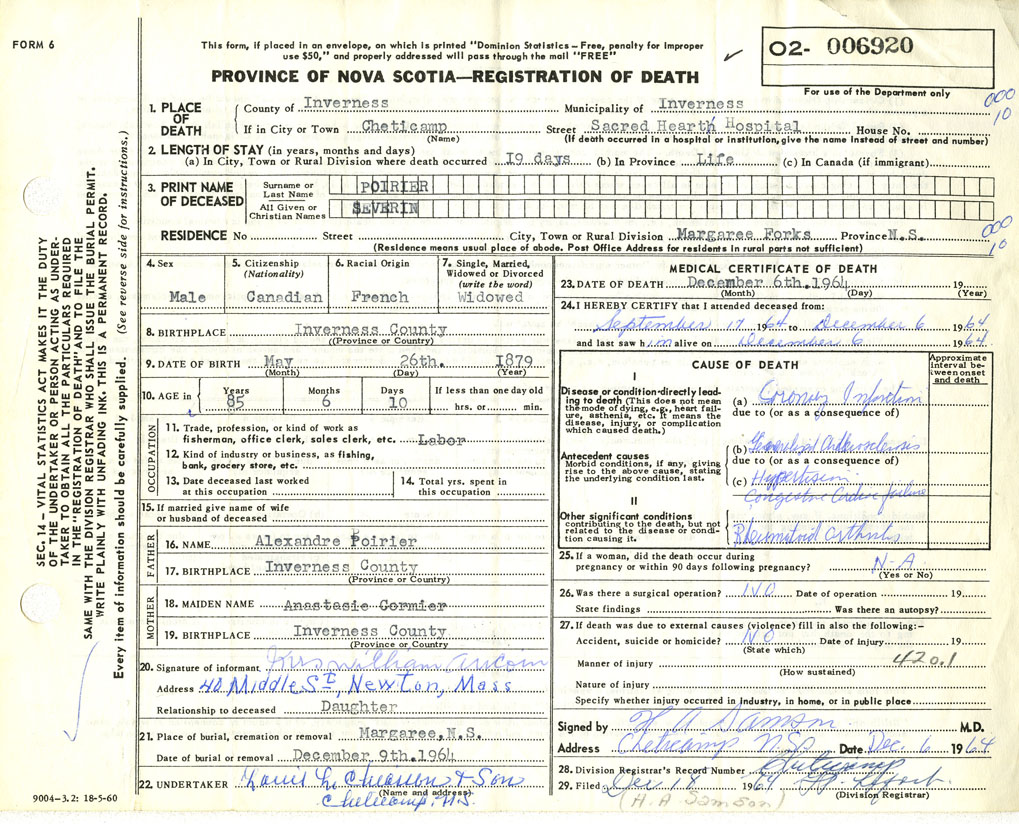 FORM 6
This form, if placed in an envelope, on which is printed "Dominion Statistics – Free, penalty for improper
use $50," and properly addressed will pass through the mail "FREE"
O2- 006920
PROVINCE OF NOVA SCOTIA—REGISTRATION OF DEATH
For use of the Department only
000
10
1. PLACE OF DEATH
County of Inverness Municipality of Inverness
If in City or Town Cheticamp Street Sacred Hearth Hospital House No.
(Name) (If death occurred in a hospital or institution, give the name instead of street and number)
2. LENGTH OF STAY (in years, months and days)
(a) In City, Town or Rural Division where death occurred 19 days (b) In Province Life (c) In Canada (if immigrant)
3. PRINT NAME OF DECEASED
Surname or Last Name POIRIER
All Given or Christian Names SEVERIN
000
10
RESIDENCE No Street City, Town or Rural Division Margaree Forks Province N.S.
(Residence means usual place of abode. Post Office Address for residents in rural parts not sufficient)
4. Sex
Male
5. Citizenship
(Nationality)
Canadian
6. Racial Origin
French
7. Single, Married,
Widowed or Divorced
(write the word)
Widowed
8. BIRTHPLACE Inverness County
((Province or Country)
9. DATE OF BIRTH May 26th. 1879
(Month) (Day) (Year)
10. AGE in Years Months Days If less than one day old
85 6 10 hrs. or min.
OCCUPATION
11. Trade, profession, or kind of work as
fisherman, office clerk, sales clerk, etc. Labor
12. Kind of industry or business, as fishing,
bank, grocery store, etc.
13. Date deceased last worked
at this occupation
14. Total yrs. spent in
this occupation
15. If married give name of wife
or husband of deceased
FATHER
16. NAME Alexandre Poirier
17. BIRTHPLACE Inverness County
(Province or Country)
MOTHER
18. MAIDEN NAME Anastasie Cormier
19. BIRTHPLACE Inverness County
(Province or Country
20. Signature of informant Mrs William
Address 40 Middle St, Newton, Mass
Relationship to deceased Daughter
21. Place of burial, cremation or removal Margaree, N.S.
Date of burial or removal December 9th. 1964
22. UNDERTAKER & Son
(Name and address)
Cheticamp, N.S.
MEDICAL CERTIFICATE OF DEATH
23. DATE OF DEATH December 6th. 1964 19
(Month) (Day) (Year)
24. I HEREBY CERTIFY that I attended deceased from:
September 17 1964 to December 6 1964
and last saw him alive on December 6 1964
CAUSE OF DEATH
Approximate interval between onset and death
I
Disease or condition directly leading to death (This does not mean the mode of dying, e.g., heart failure, asthenia, etc. It means the disease, injury, or complication which caused death.)
(a) Coronary Infarction
due to (or as a consequence of)
Antecedent causes
Morbid conditions, if any, giving rise to the above cause, stating the underlying condition last.
(b) Generalized Arteriosclerosis
due to (or as a consequence of)
(c) Hypertension
Congestive Cardiac failure
II
Other significant conditions
contributing to the death, but not related to the disease or condition causing it.
Rheumatoid Arthritis
25. If a woman, did the death occur during
pregnancy or within 90 days following pregnancy? N-A
(Yes or No)
26. Was there a surgical operation? NO Date of operation 19
State findings Was there an autopsy?
27. If death was due to external causes (violence) fill in also the following:–
Accident, suicide or homicide? NO Date of injury 19
(State which)
420.1
Manner of injury
(How sustained)
Nature of injury
Specify whether injury occurred in industry, in home, or in public place
Signed by H A Samson M.D.
Address Cheticamp NS Date Dec. 6 1964
28. Division Registrar's Record Number Cheticamp
29. Filed Dec 18 1964
(H. A. Samson) (Division Registrar)
SEC. 14 – VITAL STATISTICS ACT MAKES IT THE DUTY
OF THE UNDERTAKER OR PERSON ACTING AS UNDER-
TAKER TO OBTAIN ALL THE PARTICULARS REQUIRED
IN THE "REGISTRATION OF DEATH" AND TO FILE THE
SAME WITH THE DIVISION REGISTRAR WHO SHALL ISSUE THE BURIAL PERMIT.
WRITE PLAINLY WITH UNFADING INK. THIS IS A PERMANENT RECORD.
Every item of information should be carefully supplied. (See reverse side for instructions.)
9004-3.2: 18-5-60